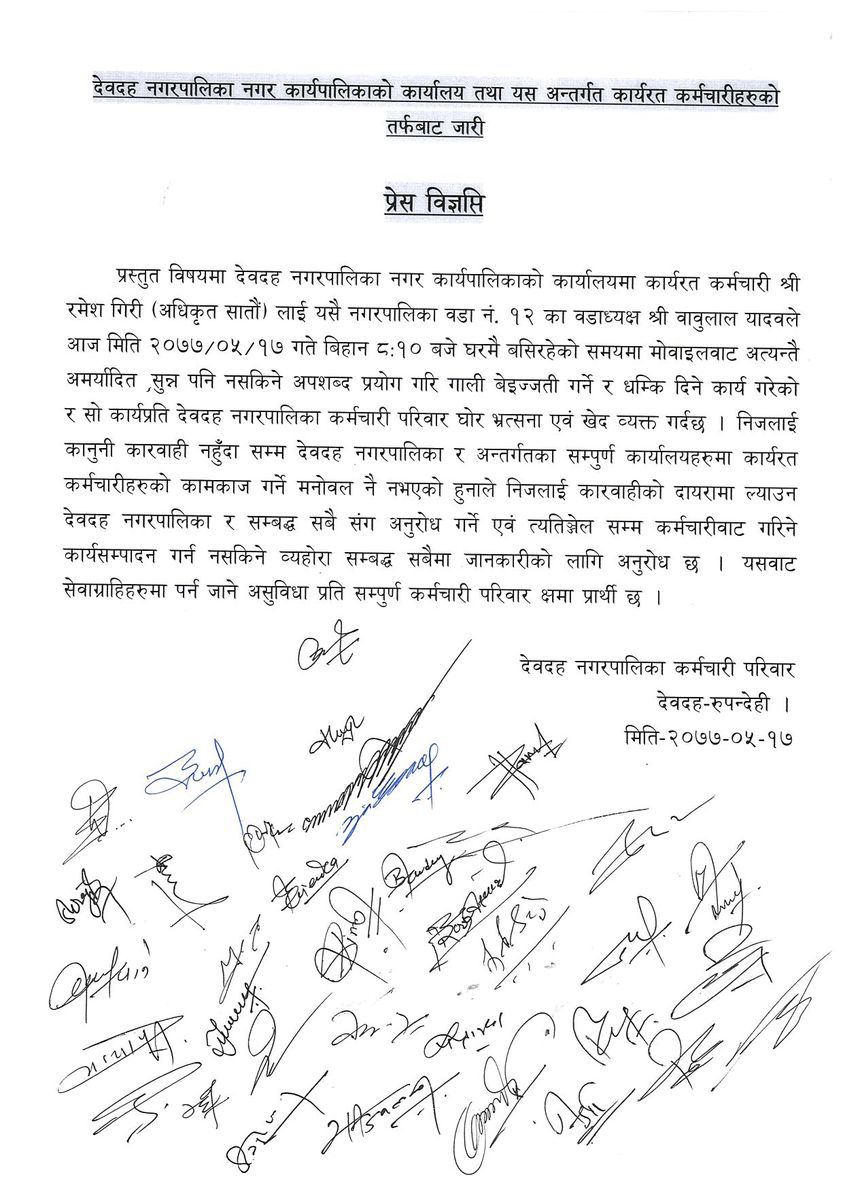 देवदह नगरपालिका नगर कार्यपालिकाको कार्यालय तथा यस अन्तर्गत कार्यरत कर्मचारीहरुको
तर्फबाट जारी
प्रेस विज्ञप्ति
प्रस्तुत विषयमा देवदह नगरपालिका नगर कार्यपालिकाको कार्यालयमा कार्यरत कर्मचारी श्री
रमेश गिरी (अधिकृत सातौं) लाई यसै नगरपालिका वडा नं. १२ का वडाध्यक्ष श्री वावुलाल यादवले
आज मिति २०७७/०५/१७ गते बिहान ८:१० बजे घरमै बसिरहेको समयमा मोवाइलवाट अत्यन्तै
अमर्यादित ,सुन्न पनि नसकिने अपशब्द प्रयोग गरि गाली बेइज्जती गर्ने र धम्कि दिने कार्य गरेको
र सो कार्यप्रति देवदह नगरपालिका कर्मचारी परिवार घोर भ्रत्सना एवं खेद व्यक्त गर्दछ । निजलाई
कानुनी कारवाही नहुँदा सम्म देवदह नगरपालिका र अन्तर्गतका सम्पुर्ण कार्यालयहरुमा कार्यरत
कर्मचारीहरुको कामकाज गर्ने मनोवल नै नभएको हुनाले निजलाई कारवाहीको दायरामा ल्याउन
देवदह नगरपालिका र सम्बद्ध सबै संग अनुरोध गर्ने एवं त्यतिञ्जेल सम्म कर्मचारीवाट गरिने
कार्यसम्पादन गर्न नसकिने व्यहोरा सम्बद्ध सबैमा जानकारीको लागि अनुरोध छ । यसवाट
सेवाग्राहिहरुमा पर्न जाने असुविधा प्रति सम्पुर्ण कर्मचारी परिवार क्षमा प्रार्थी छ ।
देवदह नगरपालिका कर्मचारी परिवार
देवदह-रुपन्देही ।
मिति-२०७७-०५-१७